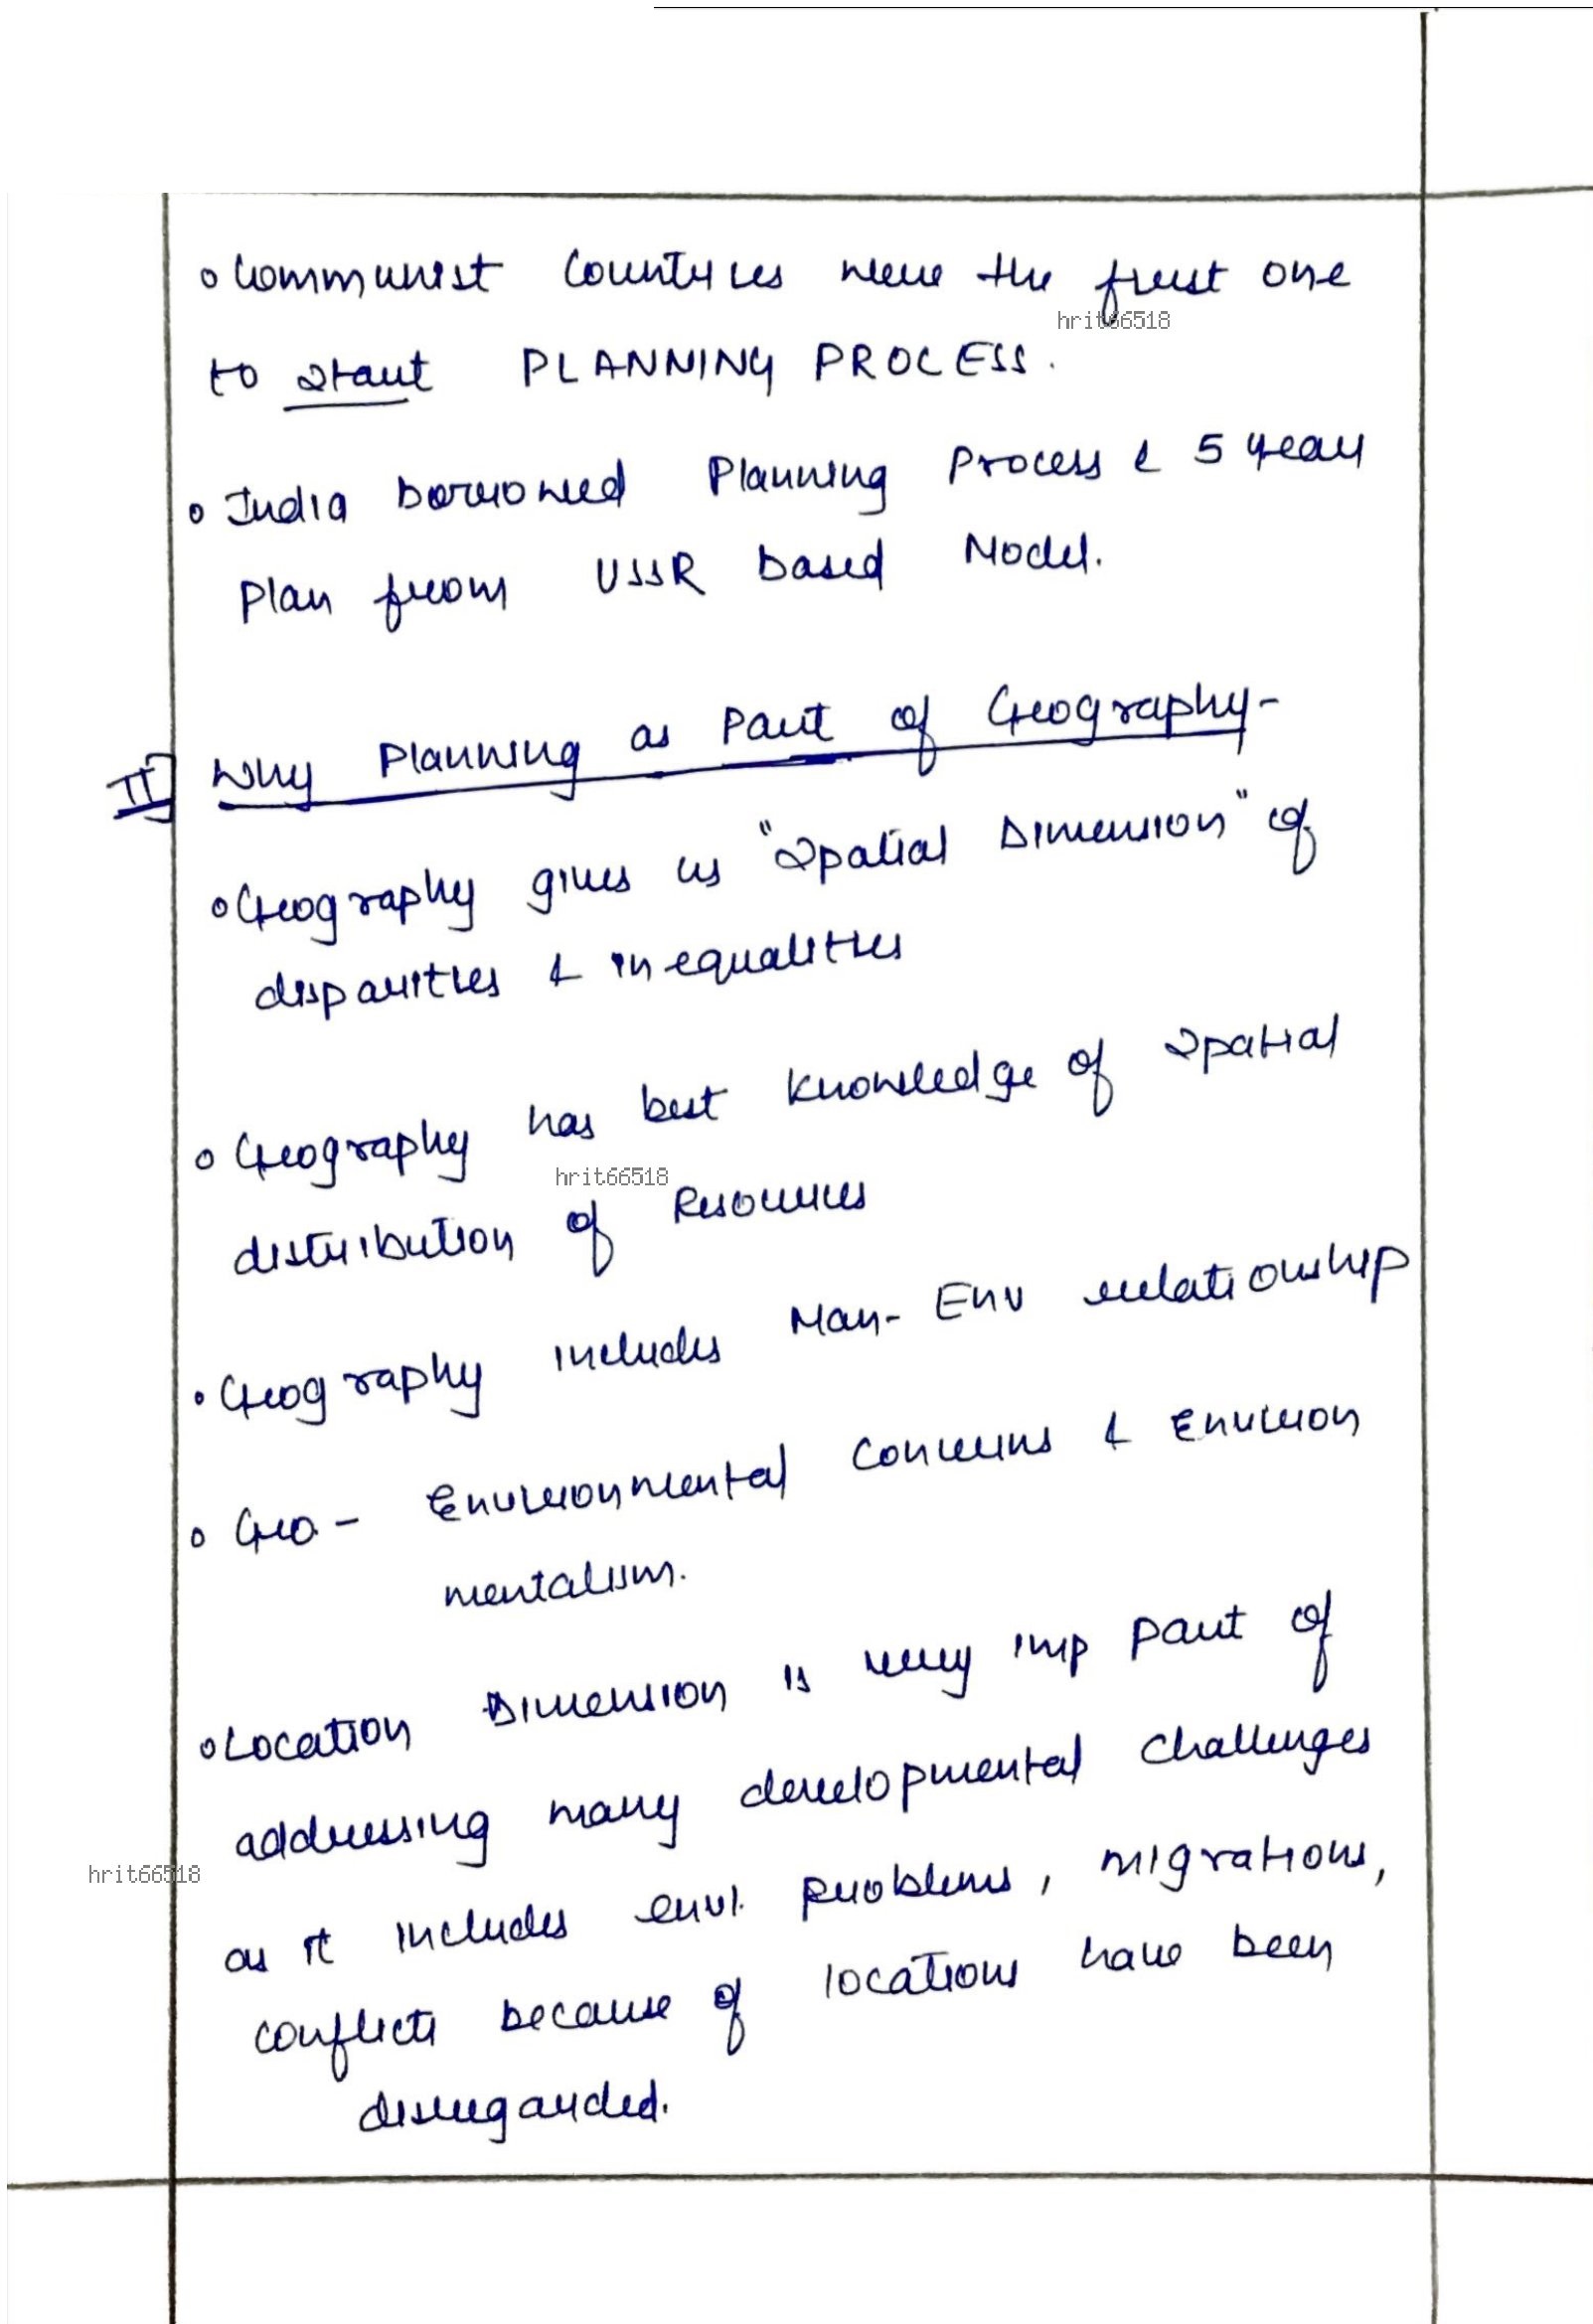 ∘ Communist Countries were the first one
hrit66518
to start PLANNING PROCESS.
∘ India borrowed Planning Process & 5 year
Plan from USSR based Model.
II] Why Planning as Part of Geography-
∘ Geography gives us "Spatial Dimension" of
disparities & inequalities
∘ Geography has best knowledge of Spatial
hrit66518
distribution of Resources
• Geography includes Man-Env relationship
∘ Geo - Environmental Concerns & Environ
mentalism.
∘ Location Dimension is very imp part of
addressing many developmental challenges
hrit66518
as it includes envl. problems, migrations,
conflicts because of locations have been
disregarded.